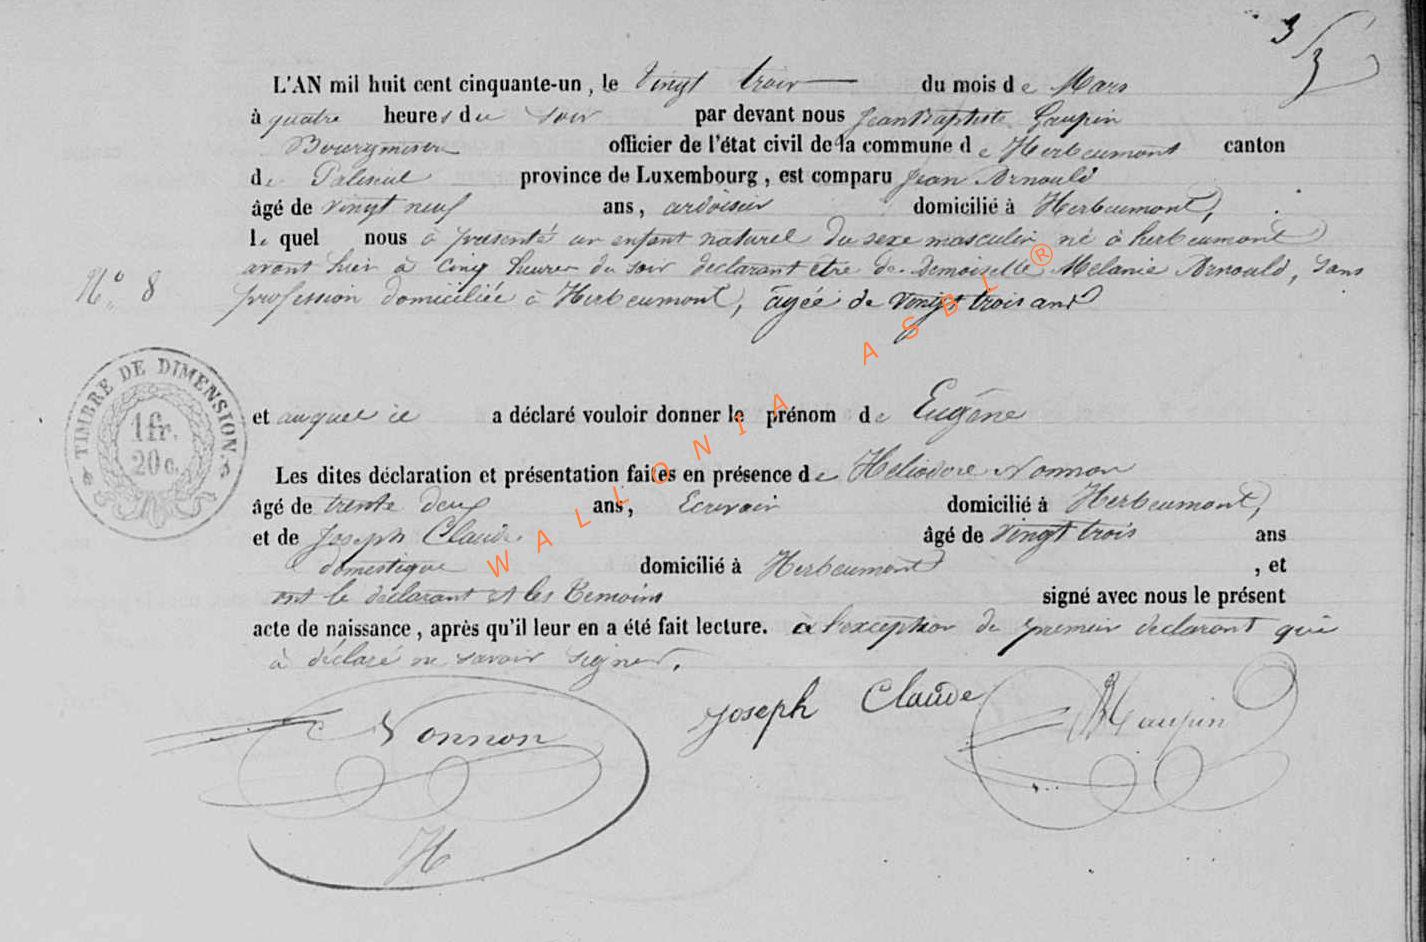 3
3
L'AN mil huit cent cinquante-un, le Vingt trois du mois de Mars
à quatre heures du soir par devant nous Jean Baptiste
Bourgmestre officier de l'état civil de la commune de Herbeumont canton
de Paliseul province de Luxembourg, est comparu Jean Arnould
âgé de vingt neuf ans, ardoisier domicilié à Herbeumont,
le quel nous à présenté un enfant naturel du sexe masculin né à herbeumont
avant hier à cinq heures du soir declarant être de Demoiselle Melanie Arnould, sans
N° 8
profession domiciliée à Herbeumont, agée de vingt trois ans
TIMBRE DE DIMENSION.
1 fr.
20 c.
et auquel il a déclaré vouloir donner le prénom de Eugène
Les dites déclaration et présentation faites en présence de Héliodore Nonnon
âgé de trente deux ans, Ecrivain domicilié à Herbeumont,
et de Joseph Claude âgé de Vingt trois ans
domestique domicilié à Herbeumont, et
ont le déclarant et les Temoins signé avec nous le présent
acte de naissance, après qu'il leur en a été fait lecture. à l'exception du premier declarant qui
à déclaré ne savoir signer.
Nonnon
H
Joseph Claude
WALLONIA ASBL®